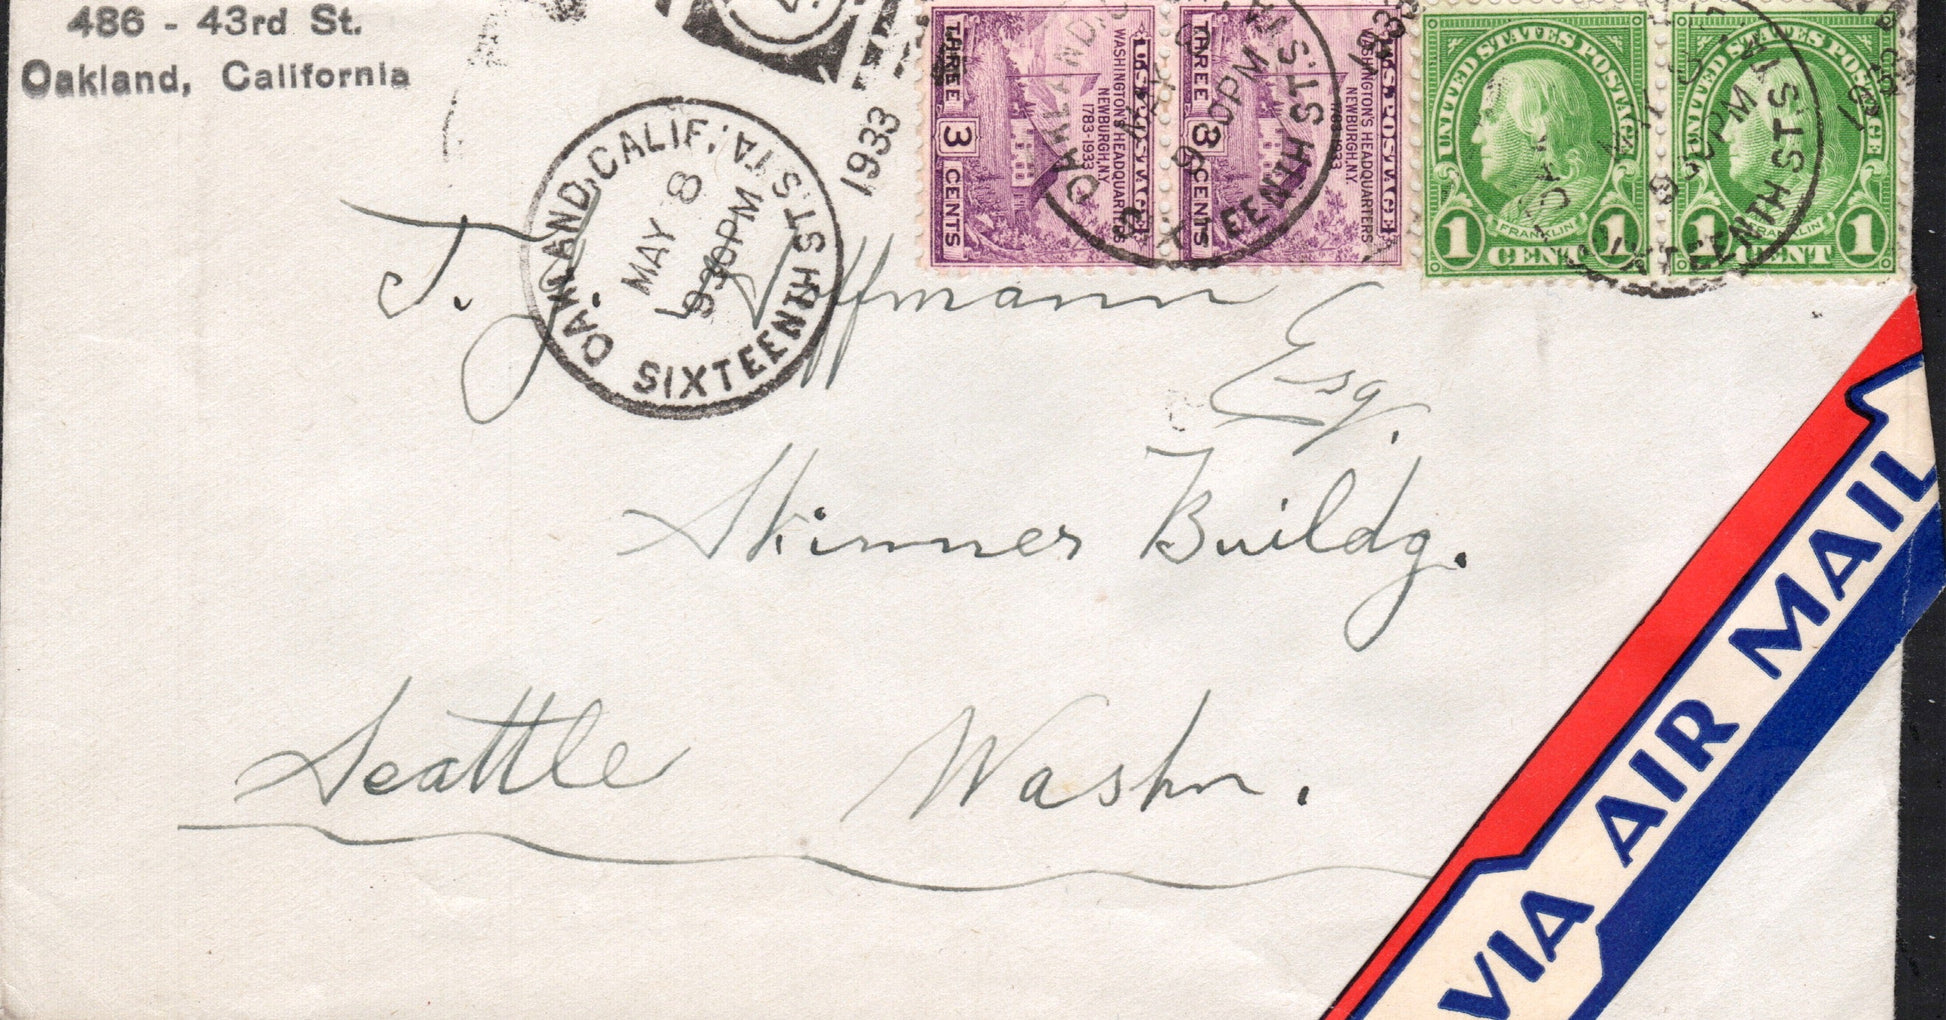 486 - 43rd St.
Oakland, California
OAKLAND, CALIF. STA.
MAY 8
930PM
1933
SIXTEENTH ST.
U.S. POSTAGE
WASHINGTON'S HEADQUARTERS
NEWBURGH, N.Y.
1783-1933
THREE 3 CENTS
U.S. POSTAGE
WASHINGTON'S HEADQUARTERS
NEWBURGH, N.Y.
1783-1933
THREE 3 CENTS
UNITED STATES POSTAGE
FRANKLIN
1 CENT 1
UNITED STATES POSTAGE
FRANKLIN
1 CENT 1
T. J. Hoffmann
Esq.
Skinner Buildg.
Seattle Washn.
VIA AIR MAIL